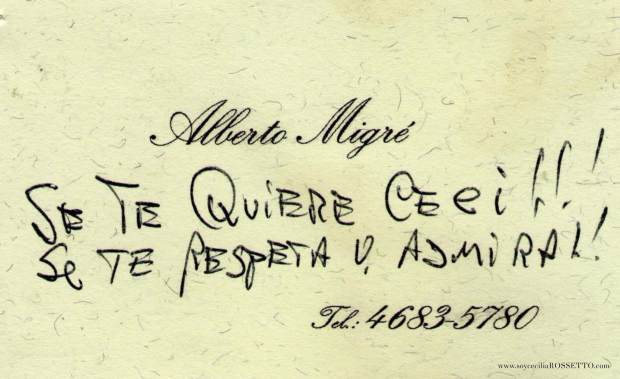 Alberto Migré
SE TE QUIERE CECi!!!
SE TE RESPETA y ADMiRA!!
Tel.: 4683-5780
www.soyceciliaROSSETTO.com